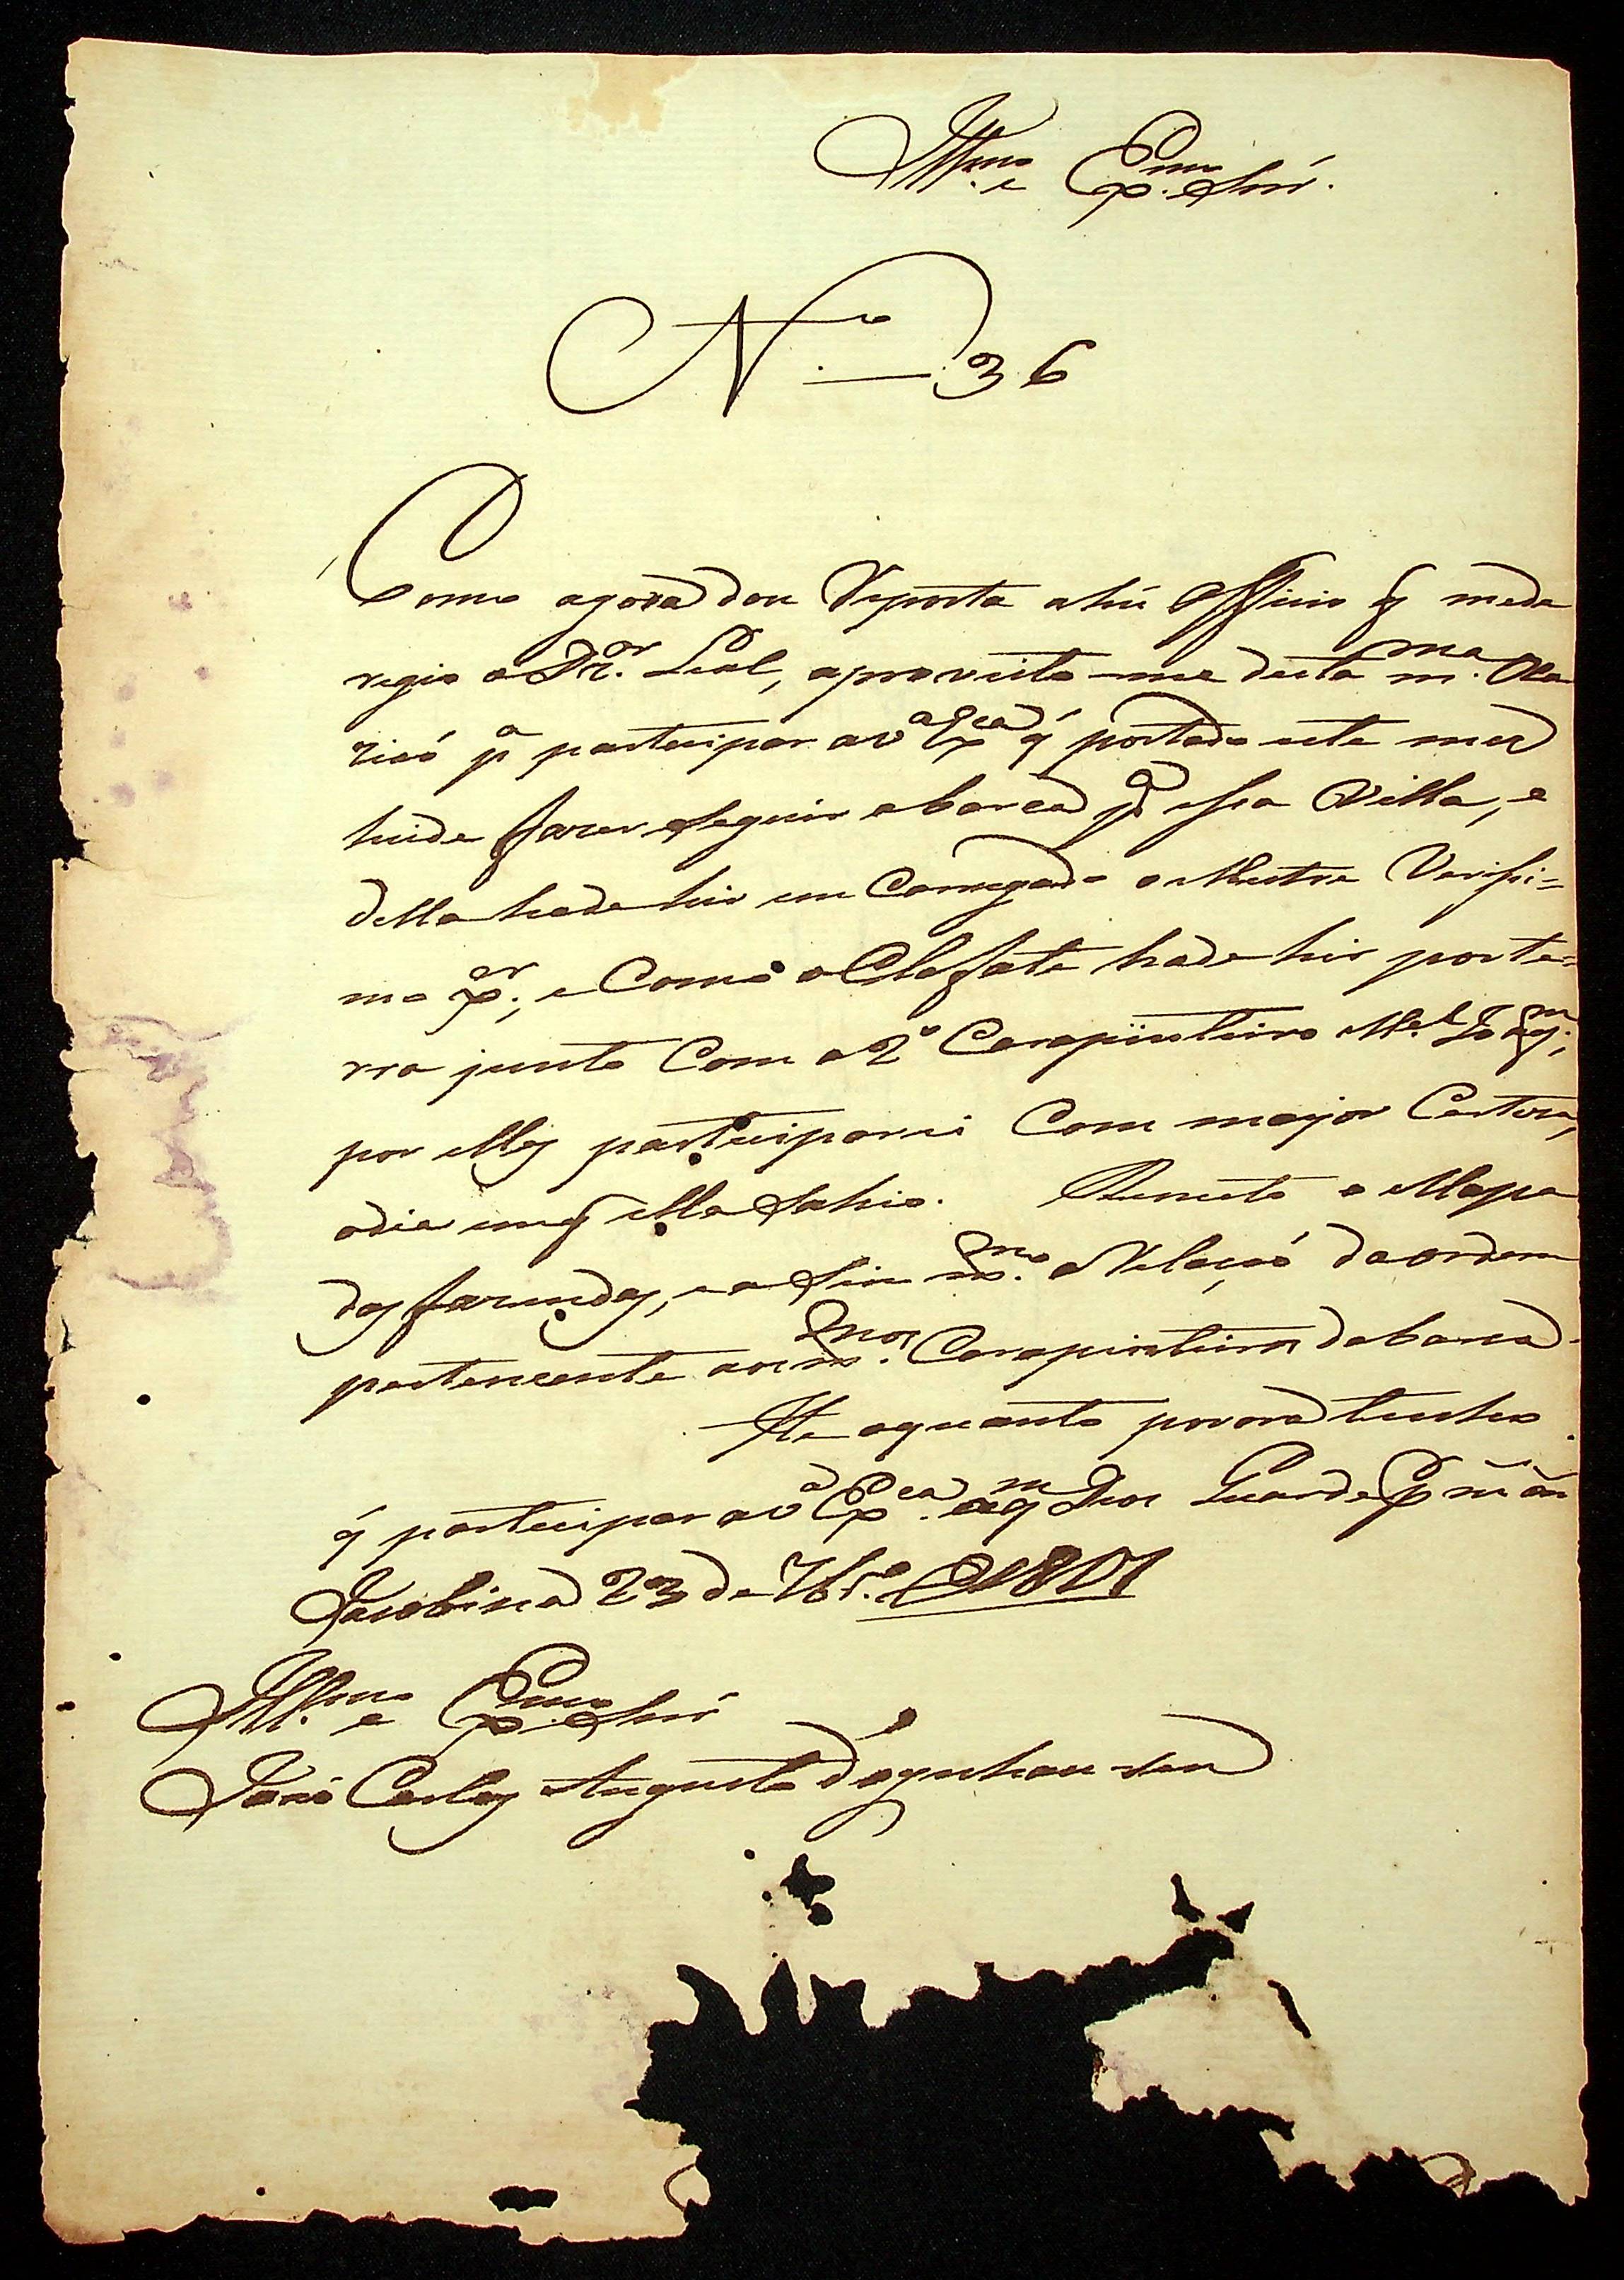 Illmo. e Exmo. Snr.
No. 36
Como agora dou Reposta ahú Officio q̃ mede
regio o Dr.or Leal, aproveito-me desta m.ma Oca
ziaó p.a partecipar a V.a Ex.ca q́ por todo este mez
heide fazer Seguir abarca p.a essa Villa, e
della hade hir em Carregado o Mestre Verissi=
mo Xer., e Como o Calafate hade hir porte=
rra junto Com o 2.o Carapinteiro M.el Joaq.m,
por elles participarei Com mayor Certeza,
odia emq̃ ella Sahio. Remeto o Mapa
das fazendas, e a Sim m.mo a Relaçaó da ordem
pertencente aos m.mos Carapinteiros da barca.
He oquanto por ora tenho
q́ partecipar a V.a Ex.ca aq.m Deos Guarde p.r m.s an.s
Jacobina 23 de 7br.o D 1801
Illmo. e Exmo. Snr
Joaó Carlos Augusto d'Oguhausen